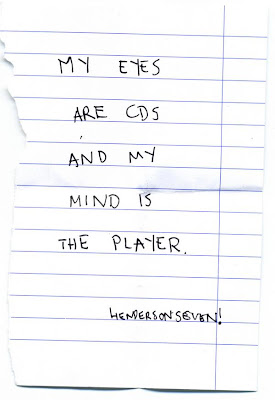 MY EYES
ARE CDS
AND MY
MIND IS
THE PLAYER.
HENDERSONSEVEN!